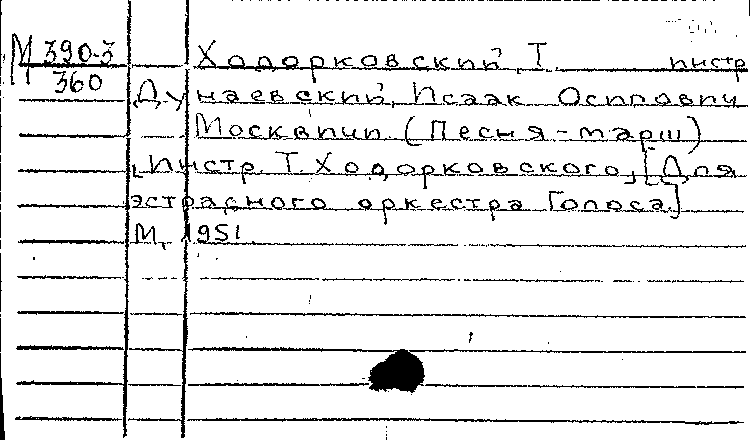 М 390-3
360
Ходорковский, Т. инстр
Дунаевский, Исаак Осипович
Москвичи (Песня-марш)
Инстр. Т. Ходорковского, [Для
эстрадного оркестра [олоса]
М, 1951.